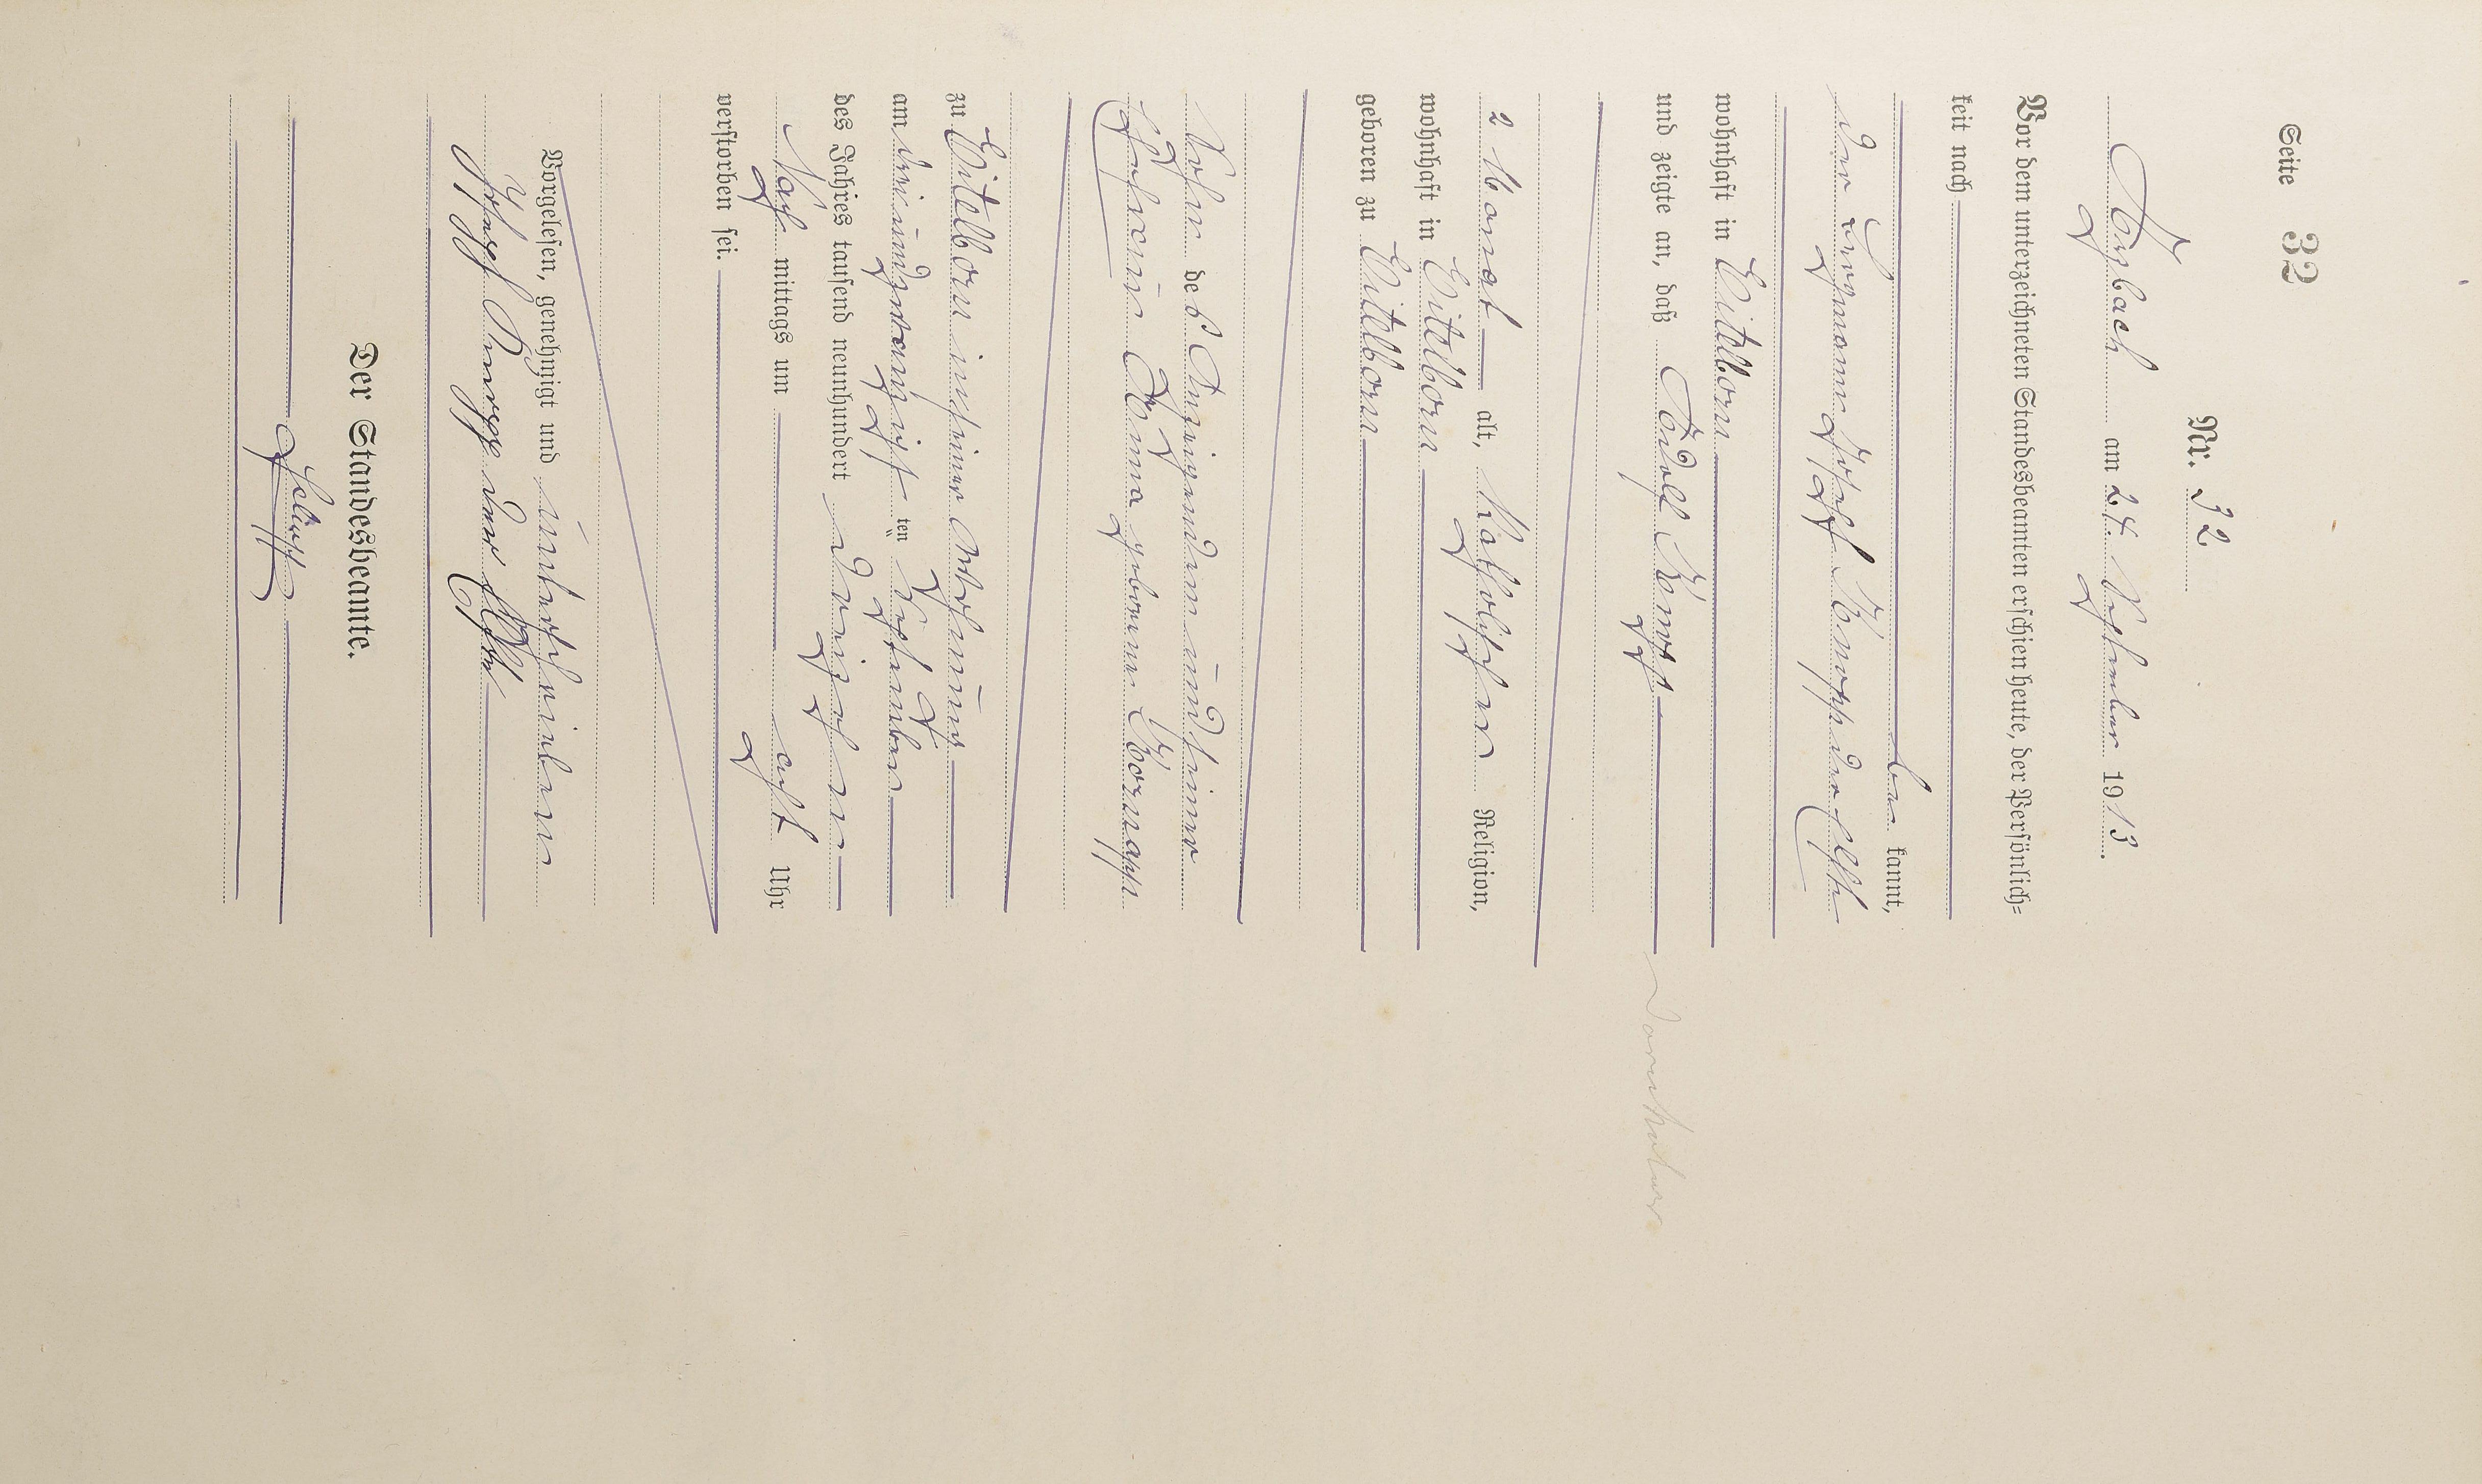 Seite 32
Nr. 32
Arzbach am 24. September 1913.
Vor dem unterzeichneten Standesbeamten erschien heute, der Persönlich=
keit nach
be kannt,
der Bergmann Josef Knopp der
wohnhaft in Eitelborn
und zeigte an, daß Adolf Knopp
2 Monat alt, katholischer Religion,
wohnhaft in Eitelborn
geboren zu Eitelborn
Sohn des Anzeigenden und seiner
Ehefrau Anna geborene
zu Eitelborn in seiner Wohnung
am drei und zwanzigsten September
des Jahres tausend neunhundert dreizehn
Nach mittags um acht Uhr
verstorben sei.
Vorgelesen, genehmigt und unterschrieben
Josef Knopp der
Der Standesbeamte.